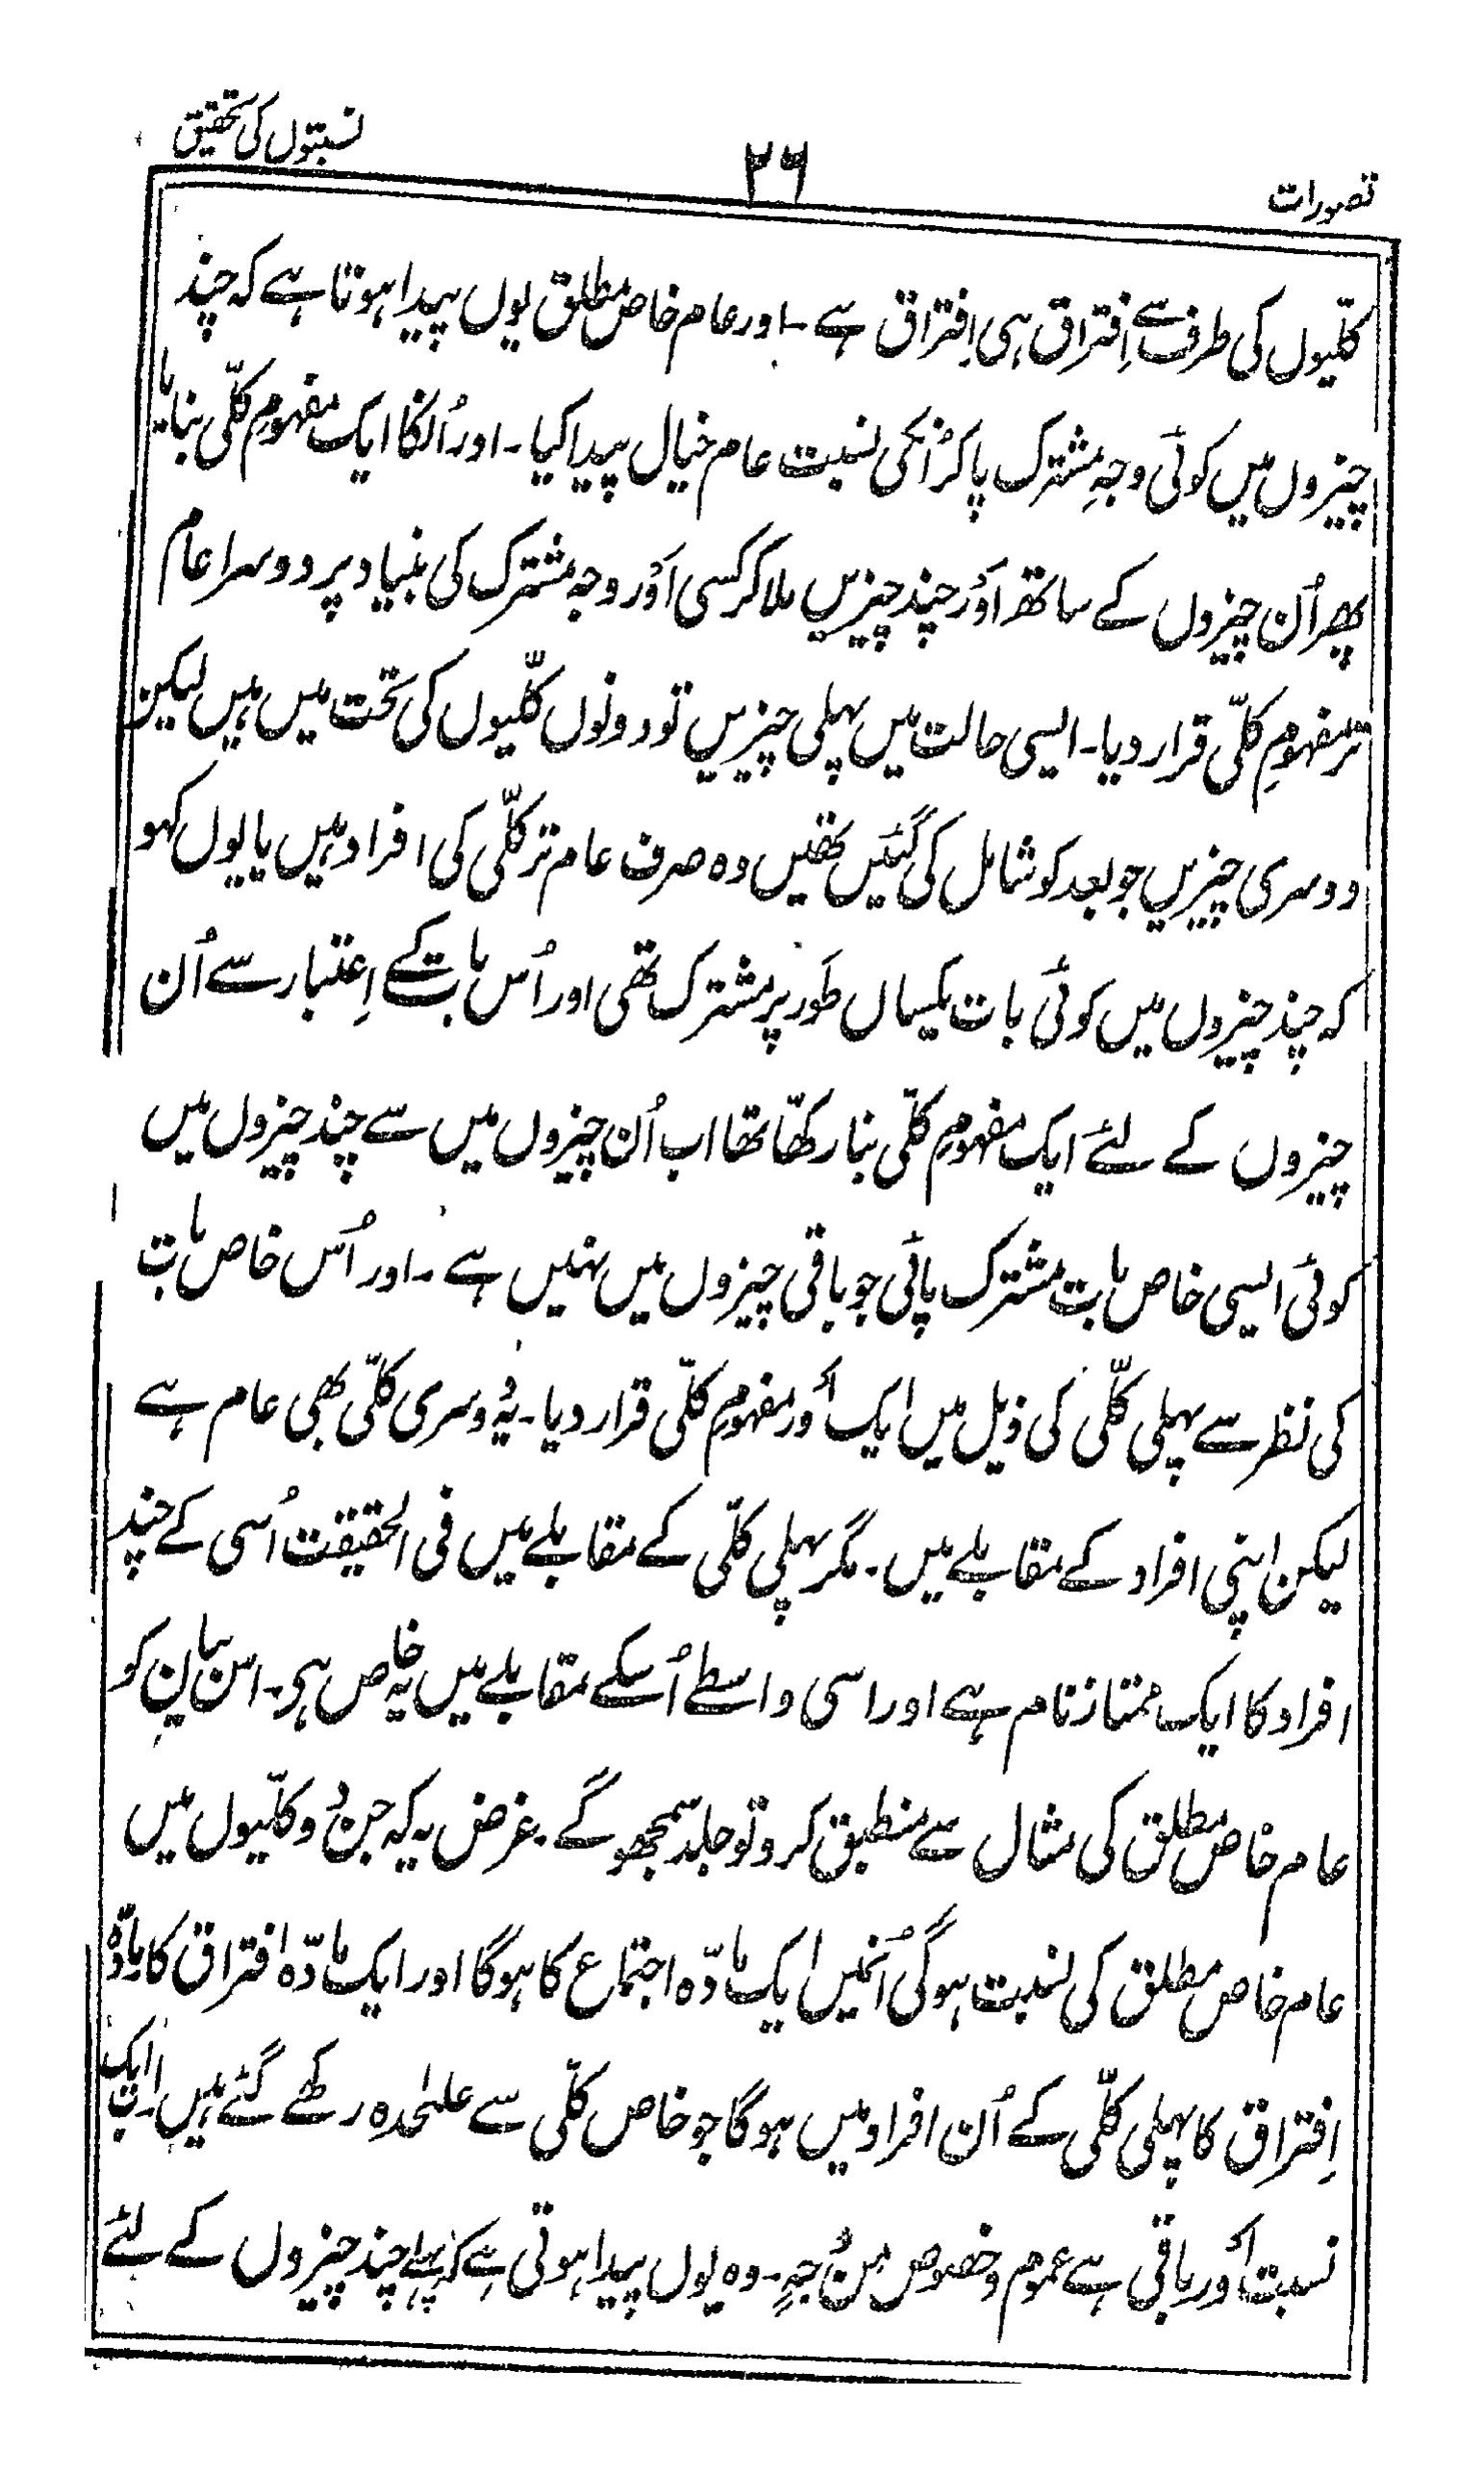 تصورات
۲۶
نسبتوں کی تحقیق
کلّیوں کی طرف سے اِفتراق ہی اِفتراق ہے ۔ اور عام خاص مطلق یوں پیدا ہوتا ہے کہ چند
چیزوں میں کوئی وجہِ مشترک پا کر اُنکی نسبت عام خیال پیدا کیا ۔ اور اُنکا ایک مفہومِ کلّی بنایا
پھر اُن چیزوں کے ساتھ اَوْر چند چیزیں ملا کر کسی اَوْر وجہ مشترک کی بنیاد پر دوسرا عام
تر مفہومِ کلّی قرار دیا۔ ایسی حالت میں پہلی چیزیں تو دونوں کلّیوں کی تحت میں ہیں لیکن
دوسری چیزیں جو بعد کو شامل کی گئیں تھیں وہ صرف عام تر کلّی کی افراد ہیں یا یوں کہو
کہ چند چیزوں میں کوئی بات یکساں طَور پر مشترک تھی اور اُس بات کے اِعتبار سے اُن
چیزوں کے لئے ایک مفہومِ کلّی بنا رکھّا تھا اب اُن چیزوں میں سے چند چیزوں میں
کوئی ایسی خاص بات مشترک پائی جو باقی چیزوں میں نہیں ہے ۔ اور اُس خاص بات
کی نظر سے پہلی کلّی کی ذیل میں ایک اَوْر مفہومِ کلّی قرار دیا ۔ یہ دُوسری کلّی بھی عام ہے
لیکن اپنی افراد کے مقابلے میں ۔ مگر پہلی کلّی کے مقابلے میں فی الحقیقت اُسی کے چند
افراد کا ایک ممتاز نام ہے اور اسی واسطے اُسکے مقابلے میں یہ خاص ہی ۔ اس بیان کو
عام خاص مطلق کی مثال سے منطبق کرو تو جلد سمجھو گے ۔ غرض یہ کہ جن دُو کلّیوں میں
عام خاص مطلق کی نسبت ہوگی اُنمیں ایک مادّہ اجتماع کا ہوگا اور ایک مادّہ افتراق کا یہ مادّہ
اِفتراق کا پہلی کلّی کے اُن افراد میں ہوگا جو خاص کلّی سے علیٰحدہ رکھے گئے ہیں ۔ اب ایک
نسبت اَوْر باقی ہے عموم و خصوص مِنْ وجہٍ ۔ وہ یوں پیدا ہوتی ہے کہ پہلے چند چیزوں کے لئے